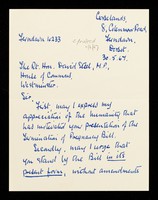 Copelands,
8, Cranmer Road,
Swindon 4233
Swindon,
Dorset.
30. 5. 67.
The Rt. Hon. David Steel, M.P.,
House of Commons,
Westminster.
Sir,
First may I express my
appreciation of the humanity that
has motivated your presentation of the
Termination of Pregnancy Bill.
Secondly, may I urge that
you stand by the Bill in its
present form, without amendments